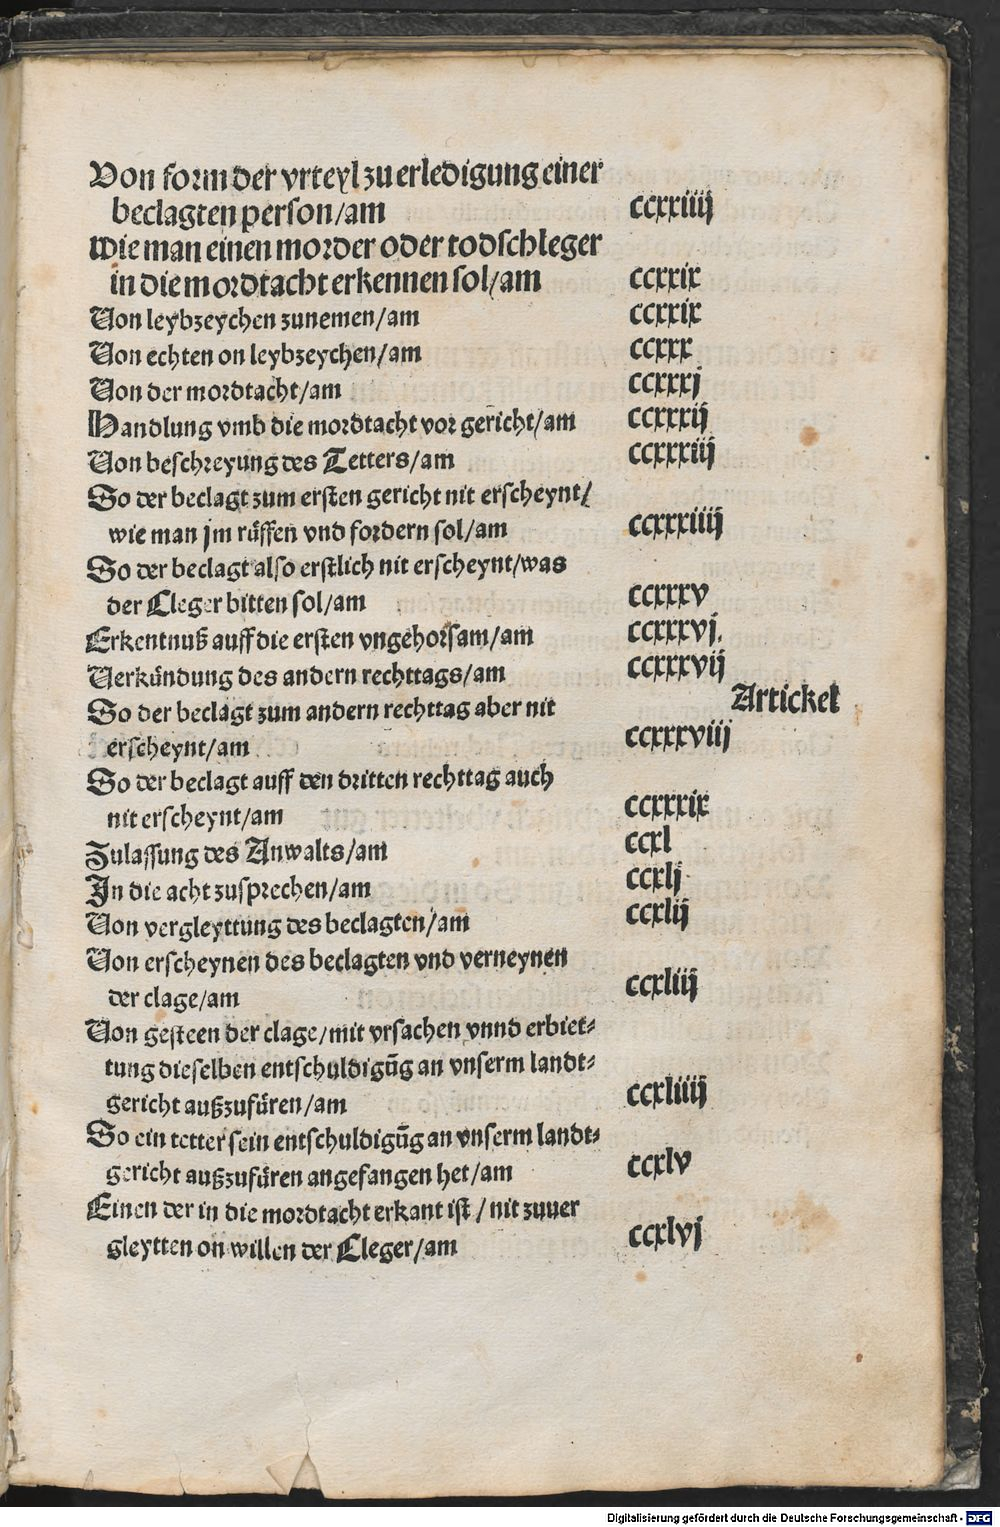 Von form der vrteyl zu erledigung einer
beclagten person/am ccxxiiij
wie man einen morder oder todschleger
in die mordtacht erkennen sol/am ccxxix
Von leybzeychen zunemen/am ccxxix
Von echten on leybzeychen/am ccxxx
Von der mordtacht/am ccxxxj
Handlung vmb die mordtacht vor gericht/am ccxxxij
Von beschreyung des Tetters/am ccxxxiij
So der beclagt zum ersten gericht nit erscheynt/
wie man jm rüffen vnd fordern sol/am ccxxxiiij
So der beclagt also erstlich nit erscheynt/was
der Cleger bitten sol/am ccxxxv
Erkentnuß auff die ersten vngehorsam/am ccxxxvj.
Verkündung des andern rechttags/am ccxxxvij
Artickel
So der beclagt zum andern rechttag aber nit
erscheynt/am ccxxxviij
So der beclagt auff den dritten rechttag auch
nit erscheynt/am ccxxxix
Zulassung des Anwalts/am ccxl
In die acht zusprechen/am ccxlj
Von vergleyttung des beclagten/am ccxlij
Von erscheynen des beclagten vnd verneynen
der clage/am ccxliij
Von gesteen der clage/mit vrsachen vnnd erbiet⸗
tung dieselben entschuldigũg an vnserm landt⸗
gericht außzufüren/am ccxliiij
So ein tetter sein entschuldigũg an vnserm landt⸗
gericht außzufüren angefangen het/am ccxlv
Einen der in die mordtacht erkant ist/nit zuuer
gleytten on willen der Cleger/am ccxlvj
Digitalisierung gefördert durch die Deutsche Forschungsgemeinschaft - DFG